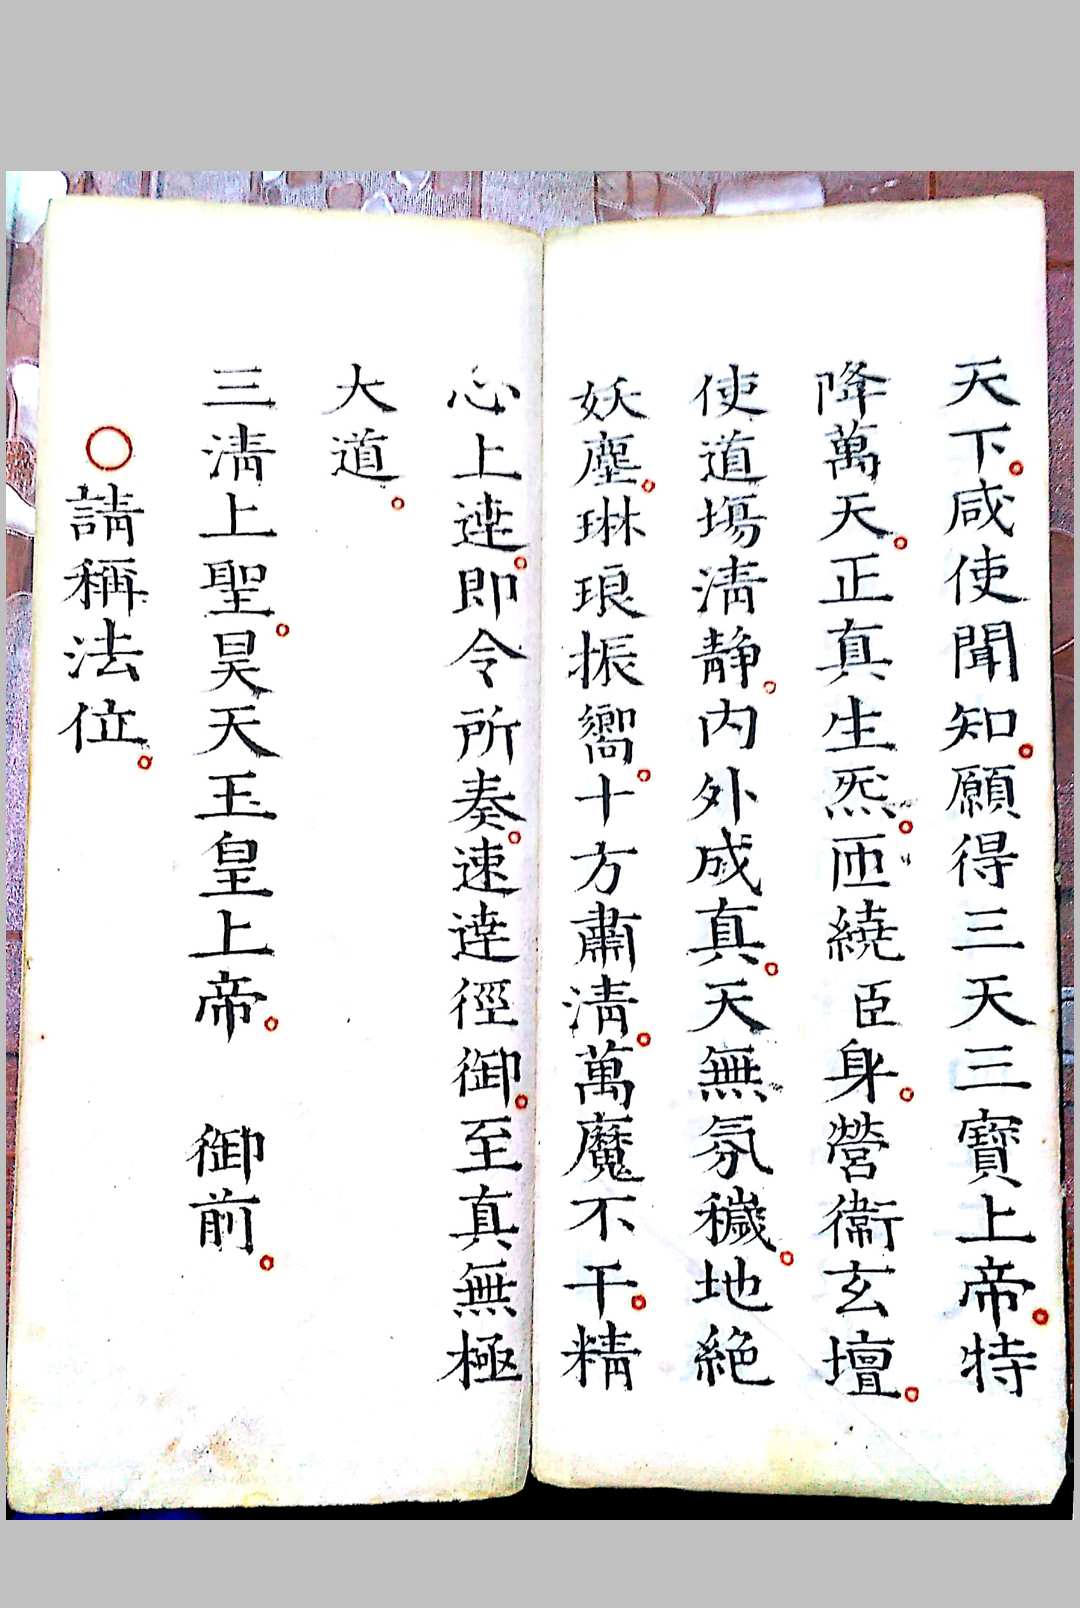 天下。咸使聞知。願得三天三寶上帝。特
降萬天。正真生炁。匝繞臣身。營衞玄壇。
使道塲淸靜。内外成真。天無氛穢。地絶
妖塵。琳琅振嚮。十方肅淸。萬魔不干。精
心上達。即令所奏。速達徑御。至真無極
大道。
三淸上聖。昊天玉皇上帝。 御前。
〇請稱法位。